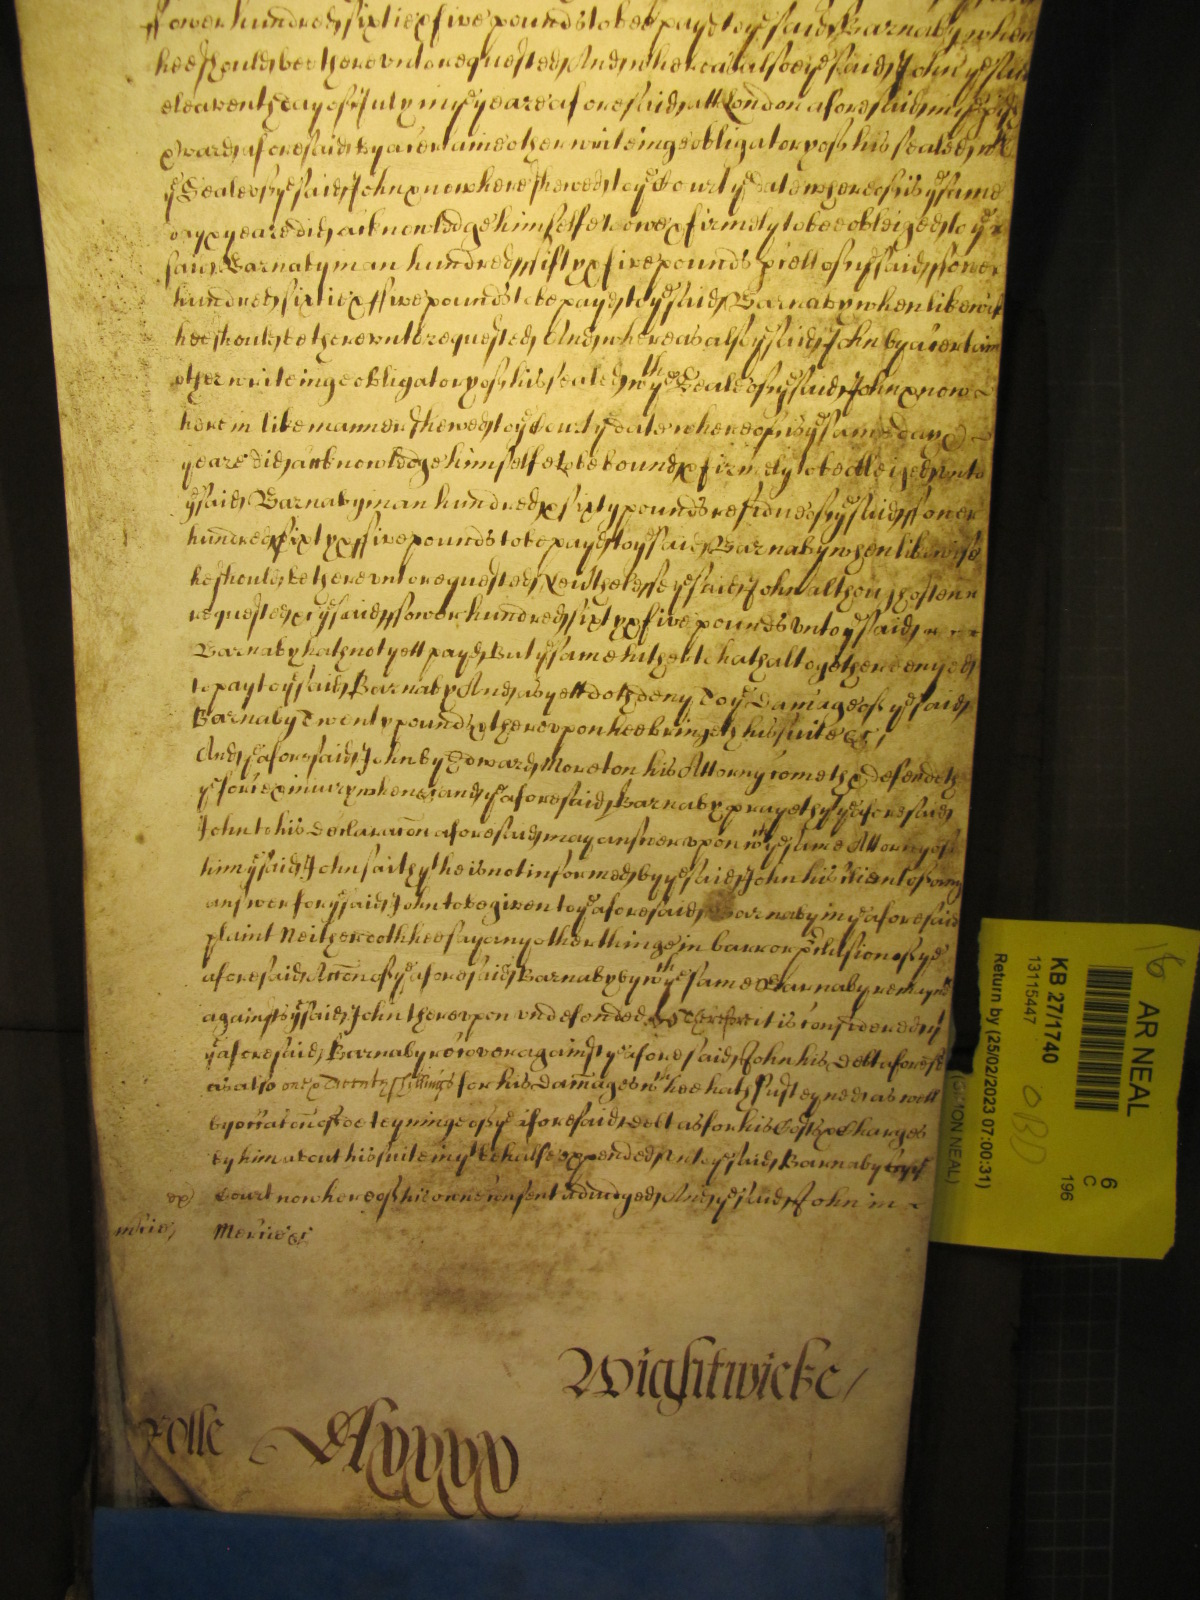 ffower hundred sixtie & five pounds to bee payd to ye said Barnaby when
hee should bee thereunto requested And whereas alsoe ye said John ye said
eleaventh day of July in ye yeare aforesaid att London aforesaid in ye
& ward aforesaid By a certaine other writeinge obligatory of his sealed wth
ye Seale of ye said John & now here shewed to ye Court ye date whereof is ye same
day & yeare did acknowledge himselfe to owe & firmely to bee obleiged to ye
said Barnaby in an hundred fifty & five pounds pcell of ye said ffower
hundred sixtie & ffive pounds to be payd to ye said Barnaby when likewise
hee should be thereunto requested And whereas also ye said John by a certain
other writeinge obligatory of his sealed wth ye Seale of ye said John & now
here in like manner shewed to ye Court ye date whereof is ye same day &
yeare did acknowledge himselfe to be bound & firmely to be obleiged unto
ye said Barnaby in an hundred & sixty pounds residue of ye said ffower
hundred sixty & ffive pounds to be payd to ye said Barnaby when likewise
he should be thereunto requested Neithelesse ye said John although often
requested ye said ffower hundred sixty & five pounds unto ye said
Barnaby hath not yett payd But ye same hitherto hath altogether denyed
to pay to ye said Barnaby And as yett doth deny To ye Damage of ye said
Barnaby Twenty pounds & thereupon hee bringeth his suite &c
And ye aforesaid John by Edward Moreton his Attorny cometh & defendeth
ye force & iniury when &c and ye aforesaid Barnaby prayeth yt ye aforesaid
John to his Declaracon aforesaid may answer upon wch ye same Attorny of
him ye said John saith yt he is not informed by ye said John his Client of any
answer for ye said John to be given to ye aforesaid Barnaby in ye aforesaid
plaint Neither doth hee say any other thinge in barr or pclusion of ye
aforesaid Accon of ye aforesaid Barnaby by wch ye same Barnaby remayns
against ye said John thereupon undefended Therefore it is considered yt
ye aforesaid Barnaby recover against ye aforesaid John his Debt aforesd
and also one & Twenty shillings for his Damages wch hee hath susteyned as well
by occacon of deteyninge of ye aforesaid debt as for his Costs & Charges
by him about his suite in yt behalfe expended to ye said Barnaby by ye
Court now here of his owne consent adiudged And ye said John in
mcie Mercie &c
Wightwicke
Rolle
AR NEAL
6
C
196
KB 27/1740
13115447
Return by (25/02/2023 07:00:31)
(SIMON NEAL)